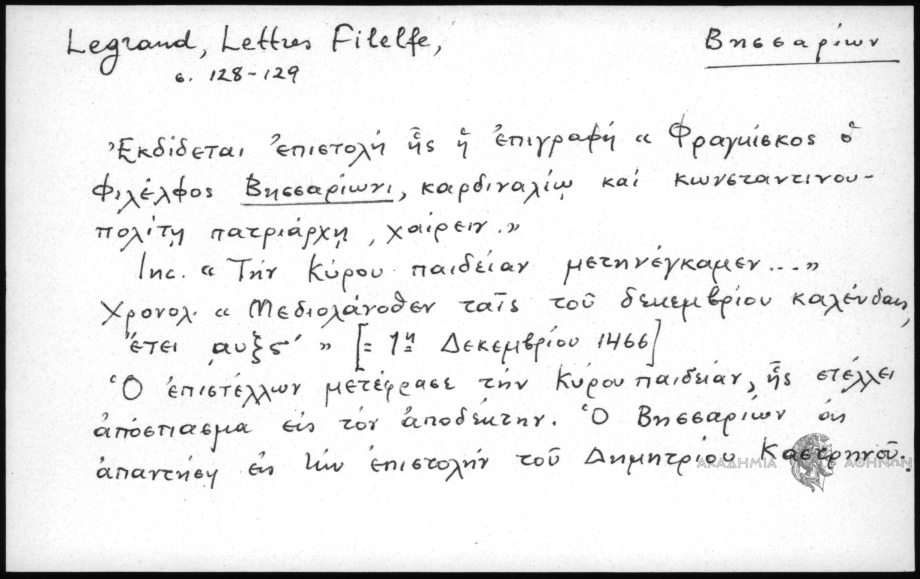 Legrand, Lettres Filelfe,
Βησσαρίων
σ. 128-129
Ἐκδίδεται ἐπιστολὴ ἧς ἡ ἐπιγραφή « Φραγκίσκος ὁ
Φιλέλφος Βησσαρίωνι, καρδιναλίῳ καὶ κωνσταντινου-
πολίτῃ πατριάρχῃ, χαίρειν.»
Inc. « Τὴν Κύρου παιδείαν μετηνέγκαμεν...»
Χρονολ. « Μεδιολάνοθεν ταῖς τοῦ δεκεμβρίου καλένδαις,
ἔτει ͵αυξϛʹ » [= 1η Δεκεμβρίου 1466]
Ὁ ἐπιστέλλων μετέφρασε τὴν Κύρου παιδείαν, ἧς στέλλει
ἀπόσπασμα εἰς τὸν ἀποδέκτην. Ὁ Βησσαρίων ἂς
ἀπαντήσῃ εἰς τὴν ἐπιστολὴν τοῦ Δημητρίου Καστρηνοῦ.
ΑΚΑΔΗΜΙΑ ΑΘΗΝΩΝ